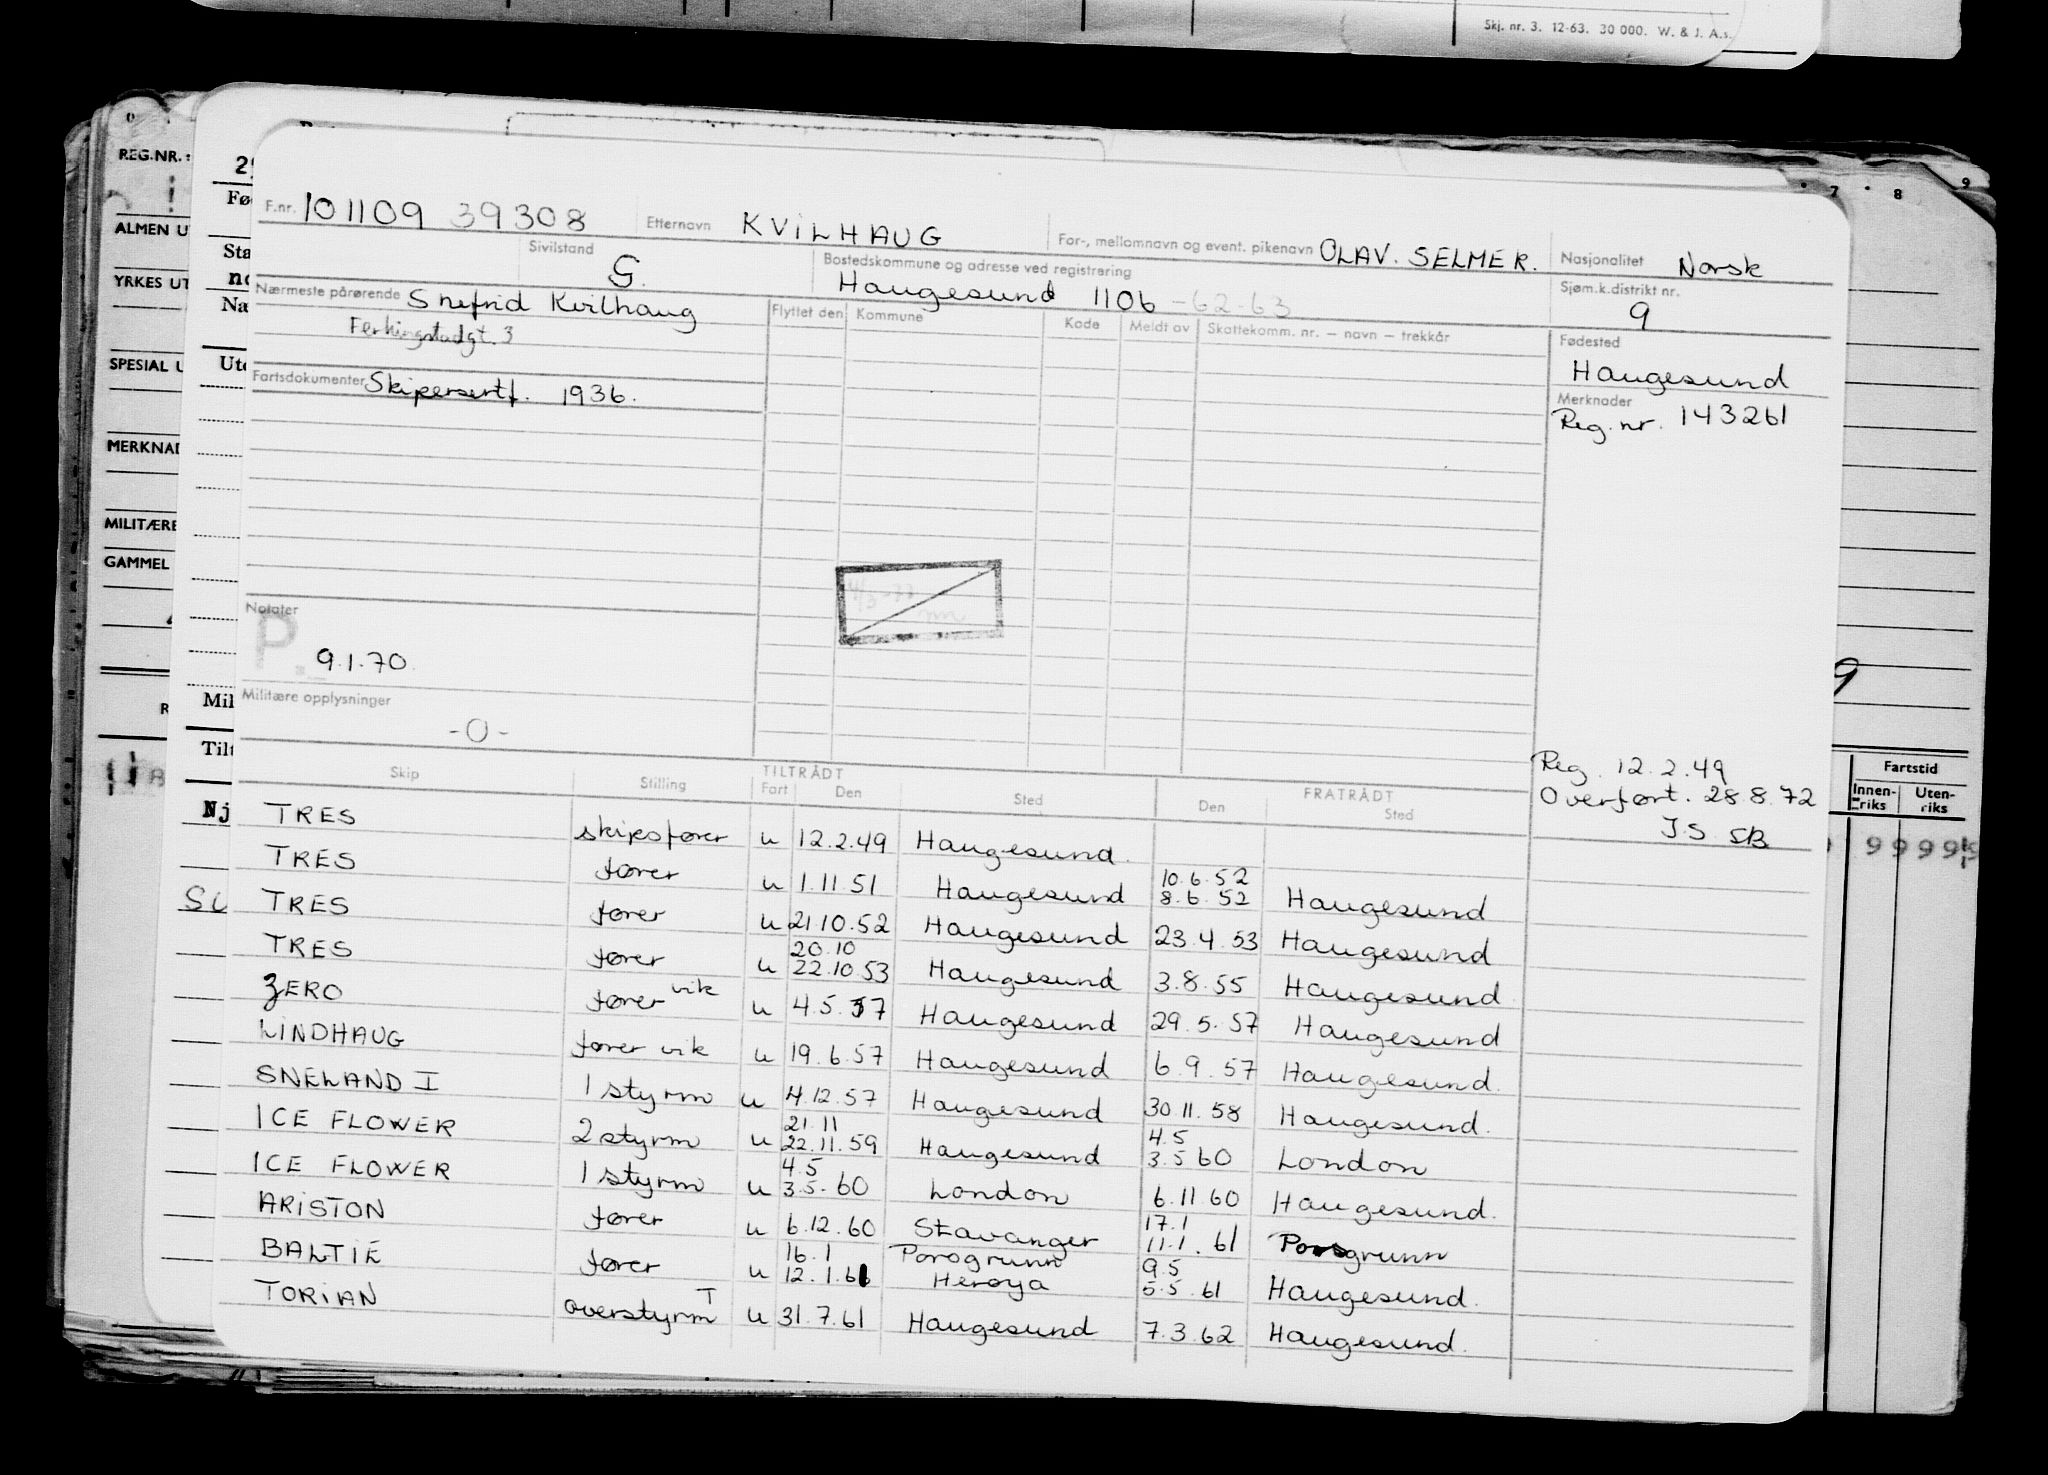 Skj. nr. 3. 12-63. 30 000. W. & J. A.s.
REG.NR.:
ALMEN U
YRKES UT
SPESIAL U
MERKNAD
MILITÆRE
GAMMEL
Fø
Sta
no
Na
Ute
Mil
Tilt
Nj
7 8 9
F.nr. 101109 39308 Etternavn KVILHAUG For-, mellomnavn og event. pikenavn OLAV. SELMER. Nasjonalitet Norsk
Sivilstand G. Bostedskommune og adresse ved registrering Haugesund 1106 -62-63 Sjøm.k.distrikt nr. 9
Nærmeste pårørende Snefrid Kvilhaug Flyttet den Kommune Kode Meldt av Skattekomm. nr. – navn – trekkår Fødested
Haugesund
Fartsdokumenter Skipersertf. 1936.
Merknader
Reg. nr. 143261
Notater
P. 9.1.70.
Militære opplysninger
-0-
Reg. 12.2.49
Overført. 28.8.72
J.S. SB
Skip Stilling TILTRÅDT Fart Den Sted FRATRÅDT Den Sted
TRES skipsfører u 12.2.49 Haugesund.
TRES fører u 1.11.51 Haugesund 10.6.52 8.6.52 Haugesund
TRES fører u 21.10.52 Haugesund 23.4.53 Haugesund
TRES fører u 20.10 22.10.53 Haugesund 3.8.55 Haugesund
ZERO fører vik u 4.5.57 Haugesund 29.5.57 Haugesund
LINDHAUG fører vik u 19.6.57 Haugesund 6.9.57 Haugesund.
SNELAND I 1 styrm u 4.12.57 Haugesund 30.11.58 Haugesund.
ICE FLOWER 2 styrm u 21.11 22.11.59 Haugesund 4.5 3.5 60 London
ICE FLOWER 1 styrm u 4.5 3.5.60 London 6.11 60 Haugesund.
ARISTON fører u 6.12.60 Stavanger 17.1 11.1.61 Porsgrunn
BALTIE fører u 16.1 12.1.61 Porsgrunn Herøya 9.5 5.5.61 Haugesund.
TORIAN overstyrm T u 31.7.61 Haugesund 7.3.62 Haugesund.
Fartstid
Innen-riks Uten-riks